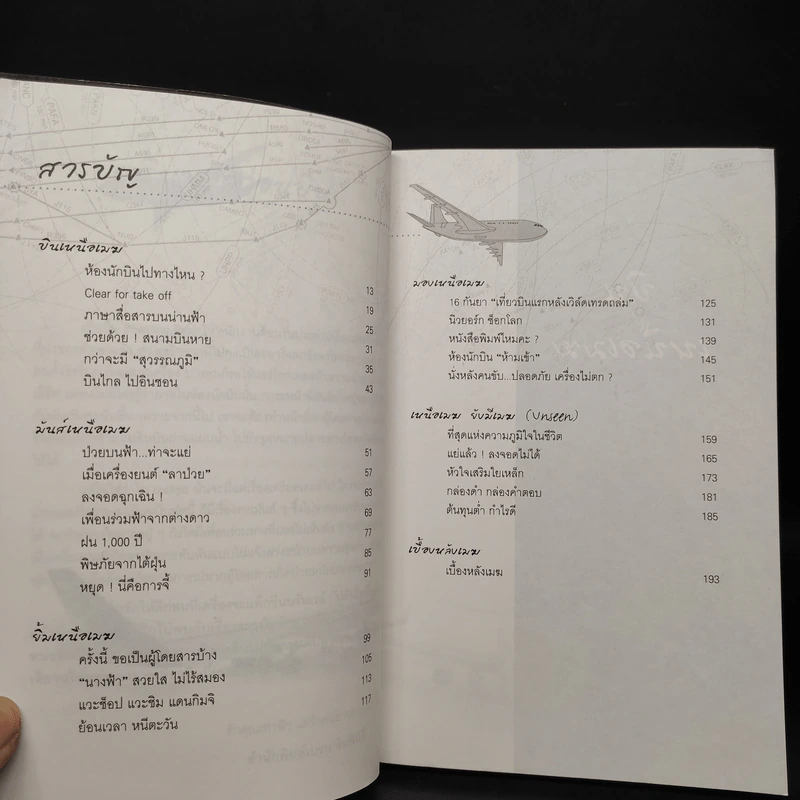 สารบัญ
บินเหนือเมฆ
ห้องนักบินไปทางไหน ? 13
Clear for take off 19
ภาษาสื่อสารบนน่านฟ้า 25
ช่วยด้วย ! สนามบินหาย 31
กว่าจะมี “สุวรรณภูมิ” 35
บินไกล ไปอินชอน 43
มันส์เหนือเมฆ
ป่วยบนฟ้า...ท่าจะแย่ 51
เมื่อเครื่องยนต์ “ลาป่วย” 57
ลงจอดฉุกเฉิน ! 63
เพื่อนร่วมฟ้าจากต่างดาว 69
ฝน 1,000 ปี 77
พิษภัยจากไต้ฝุ่น 85
หยุด ! นี่คือการจี้ 91
ยิ้มเหนือเมฆ
ครั้งนี้ ขอเป็นผู้โดยสารบ้าง 99
“นางฟ้า” สวยใส ไม่ไร้สมอง 105
แวะช็อป แวะชิม แดนกิมจิ 113
ย้อนเวลา หนีตะวัน 117
มองเหนือเมฆ
16 กันยา “เที่ยวบินแรกหลังเวิลด์เทรดถล่ม” 125
นิวยอร์ก ช็อกโลก 131
หนังสือพิมพ์ไหมคะ ? 139
ห้องนักบิน “ห้ามเข้า” 145
นั่งหลังคนขับ...ปลอดภัย เครื่องไม่ตก ? 151
เหนือเมฆ ยังมีเมฆ (Unseen)
ที่สุดแห่งความภูมิใจในชีวิต 159
แย่แล้ว ! ลงจอดไม่ได้ 165
หัวใจเสริมใยเหล็ก 173
กล่องดำ กล่องคำตอบ 181
ต้นทุนต่ำ กำไรดี 185
เบื้องหลังเมฆ
เบื้องหลังเมฆ 193